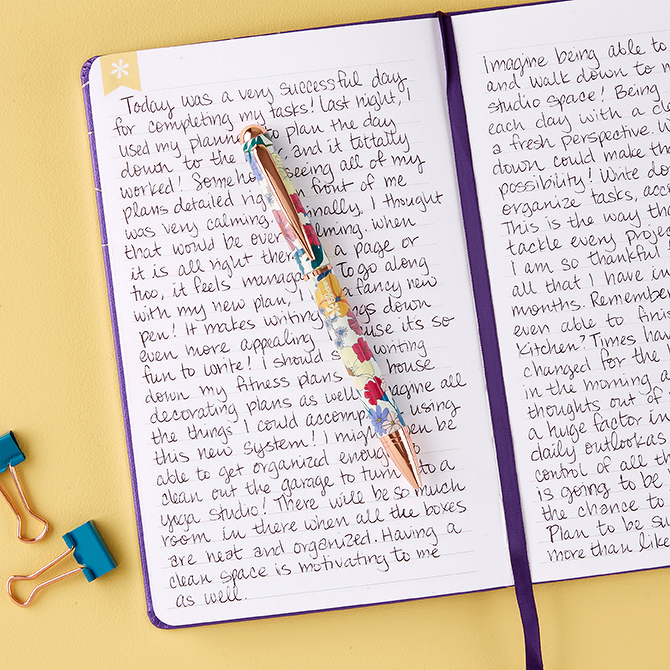 Today was a very successful day
for completing my tasks! Last night, I
used my to plan the day
down to the and it totally
worked! seeing all of my
plans detailed right front of me
was very calming. I thought
that would be when
it is all right a page or
two, it feels To go along
with my new plan, fancy new
pen! It makes writing down
even more appealing its so
fun to write! I should writing
down my fitness plans house
decorating plans as well. Imagine all
the things I could accomplish using
this new system! I might be
able to get organized enough
clean out the garage to turn to a
yoga studio! There will be so much
room in there when all the boxes
are neat and organized. Having a
clean space is motivating to me
as well.
Imagine being able to
and walk down to
studio space! Being
each day with a
a fresh perspective.
down could make
possibility! Write
organize tasks,
This is the way
tackle every
I am so thankful
all that I have in
months.
even able to
Kitchen? Times
changed for the
in the morning
thoughts out of
a huge factor in
daily outlook as
control of all
is going to be
the chance to
Plan to be
more than